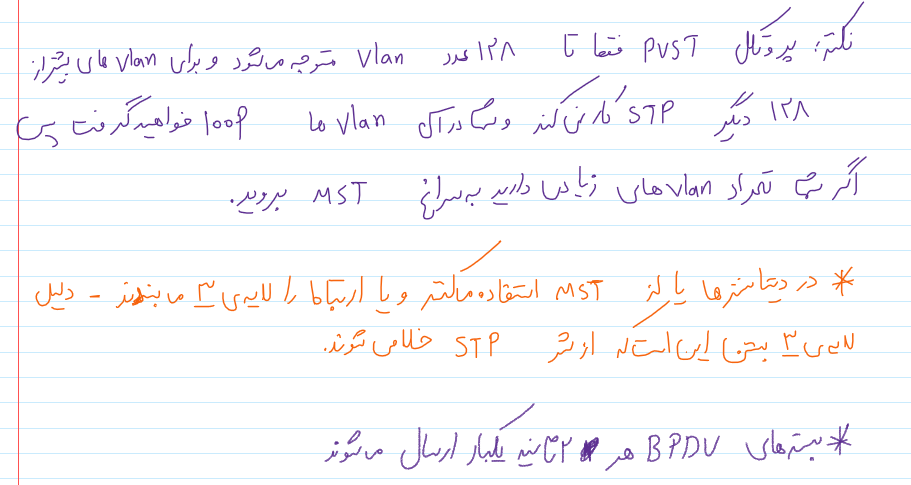 نکته: پروتکل PVST فقط تا ۱۲۸ عدد Vlan متوجه میشود و برای vlan های بیشتر از
۱۲۸ دیگر STP کار نمی کند و شما در آن Vlan ها loop خواهید گرفت پس
اگر شما تعداد vlan های زیادی دارید به سراغ MST بروید.
* در دیتاسنترها یا از MST استفاده میکنند و یا ارتباط را لایه ی ۳ می بندند - دلیل
لایه ی ۳ بستن این است که از شر STP خلاص شوند.
* بسته های BPDU هر ۲ ثانیه یکبار ارسال میشوند